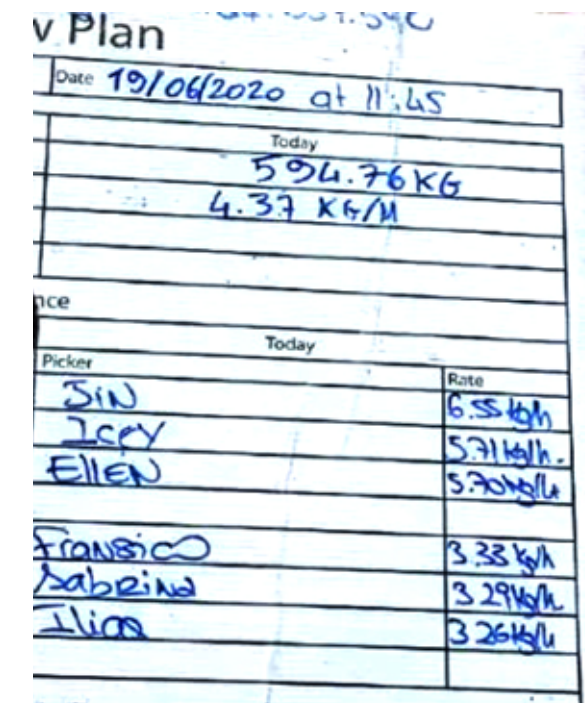 v Plan
Date 19/06/2020 at 11:45
Today
594.76 KG
4.37 KG/H
nce
Today
Picker Rate
JiN 6.55 kg/h
Icey 5.71 kg/h.
EllEN 5.70 kg/h
Fransico 3.33 kg/h
Sabrina 3.29 kg/h
3.26 kg/h